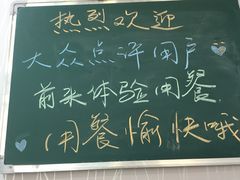 热烈欢迎
大众点评用户
前来体验用餐.
(用餐愉快哦